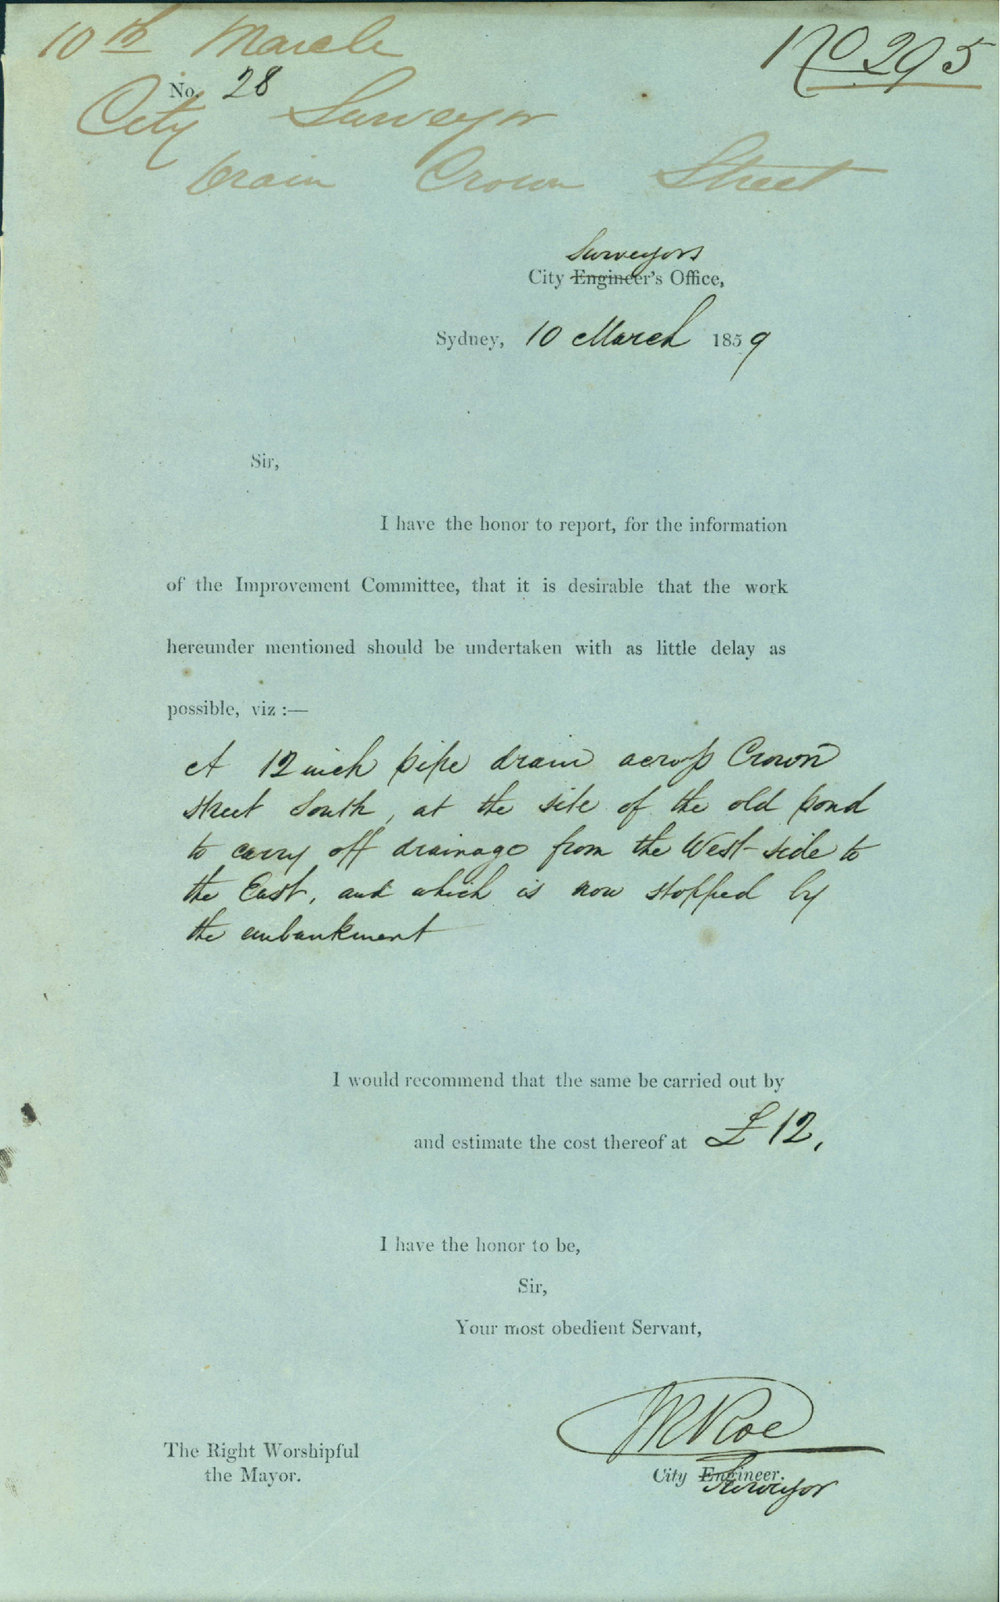 10th March
No 295
No. 28
City Surveyor
Drain Crown Street
Surveyors
City Engineer's Office,
Sydney, 10 March 1859
Sir,
I have the honor to report, for the information
of the Improvement Committee, that it is desirable that the work
hereunder mentioned should be undertaken with as little delay as
possible, viz :—
A 12 inch pipe drain across Crown
street South, at the site of the old pond
to carry off drainage from the West side to
the East, and which is now stopped by
the embankment
I would recommend that the same be carried out by
and estimate the cost thereof at £12,
I have the honor to be,
Sir,
Your most obedient Servant,
The Right Worshipful
the Mayor.
City Engineer.
Surveyor